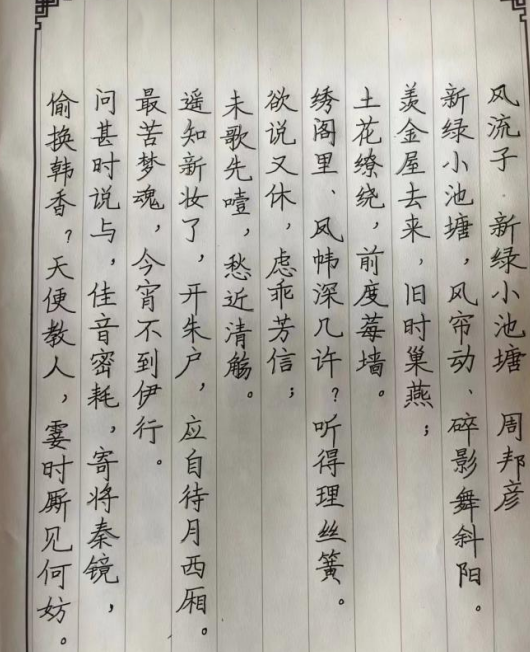 风流子·新绿小池塘 周邦彦
新绿小池塘，风帘动、碎影舞斜阳。
羡金屋去来，旧时巢燕；
土花缭绕，前度莓墙。
绣阁里、风帏深几许？听得理丝簧。
欲说又休，虑乖芳信；
未歌先噎，愁近清觞。
遥知新妆了，开朱户，应自待月西厢。
最苦梦魂，今宵不到伊行。
问甚时说与，佳音密耗，寄将秦镜，
偷换韩香？天便教人，霎时厮见何妨。